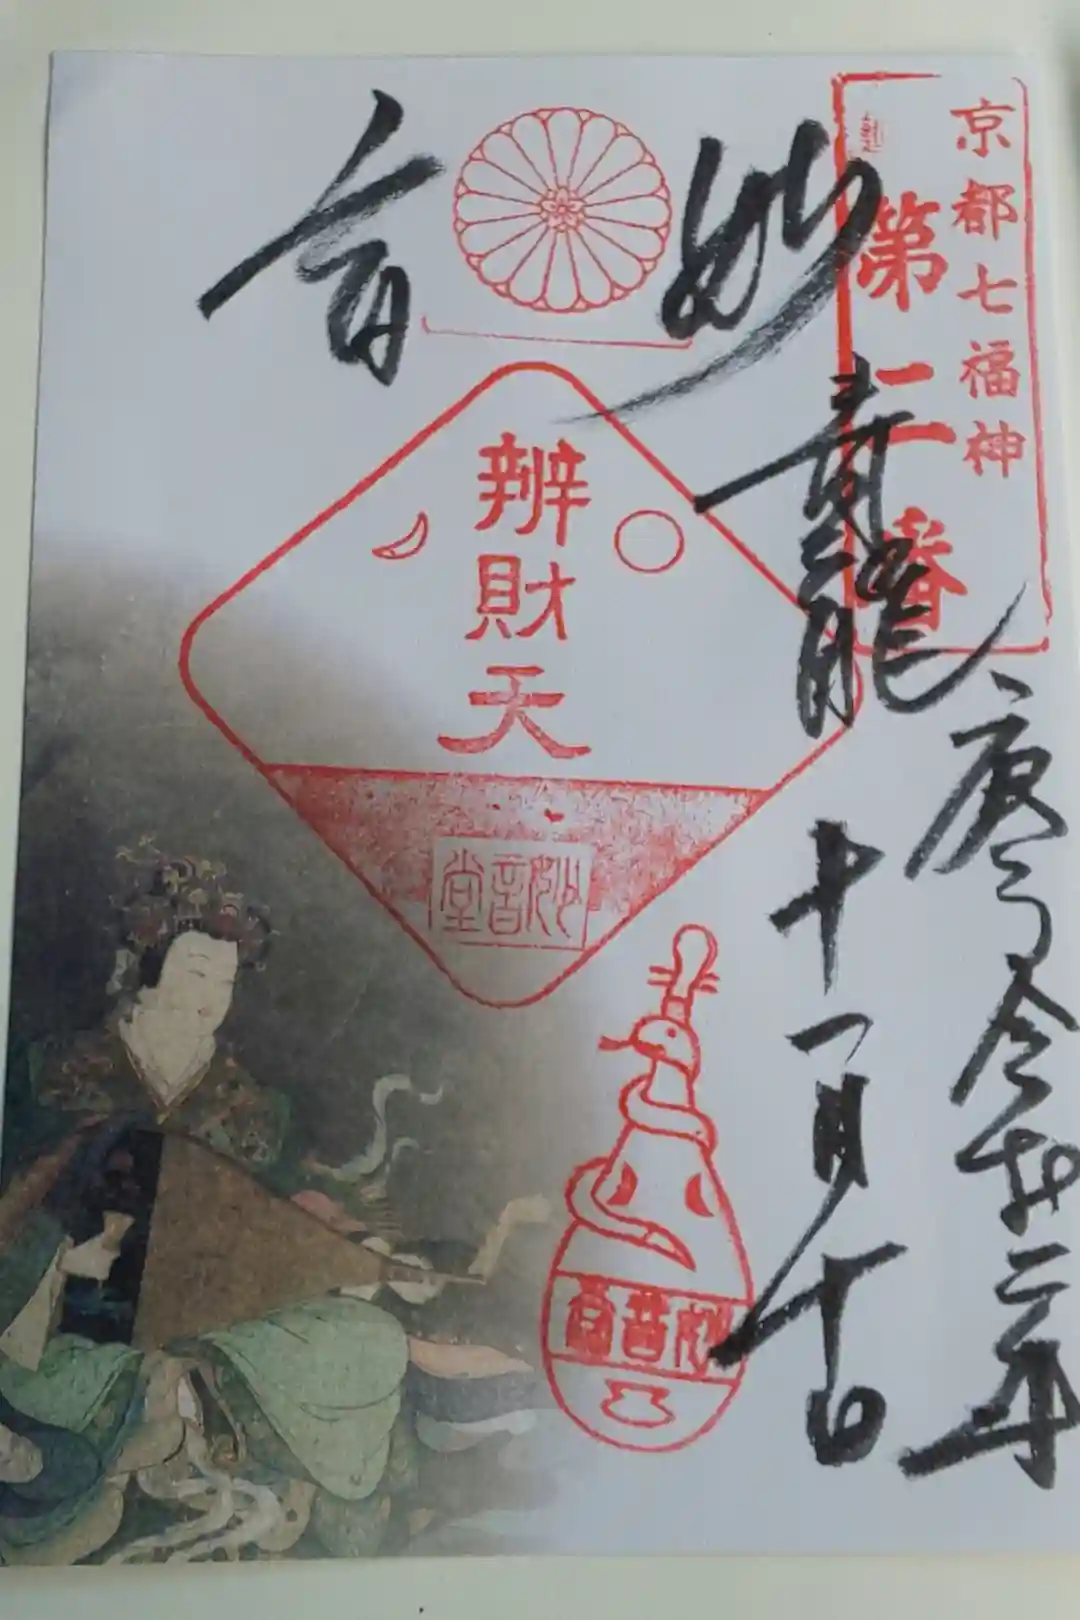 京都七福神
第二番
妙音
青龍
庚子令和二年
十一月十日
辨財天
妙音堂
妙音堂